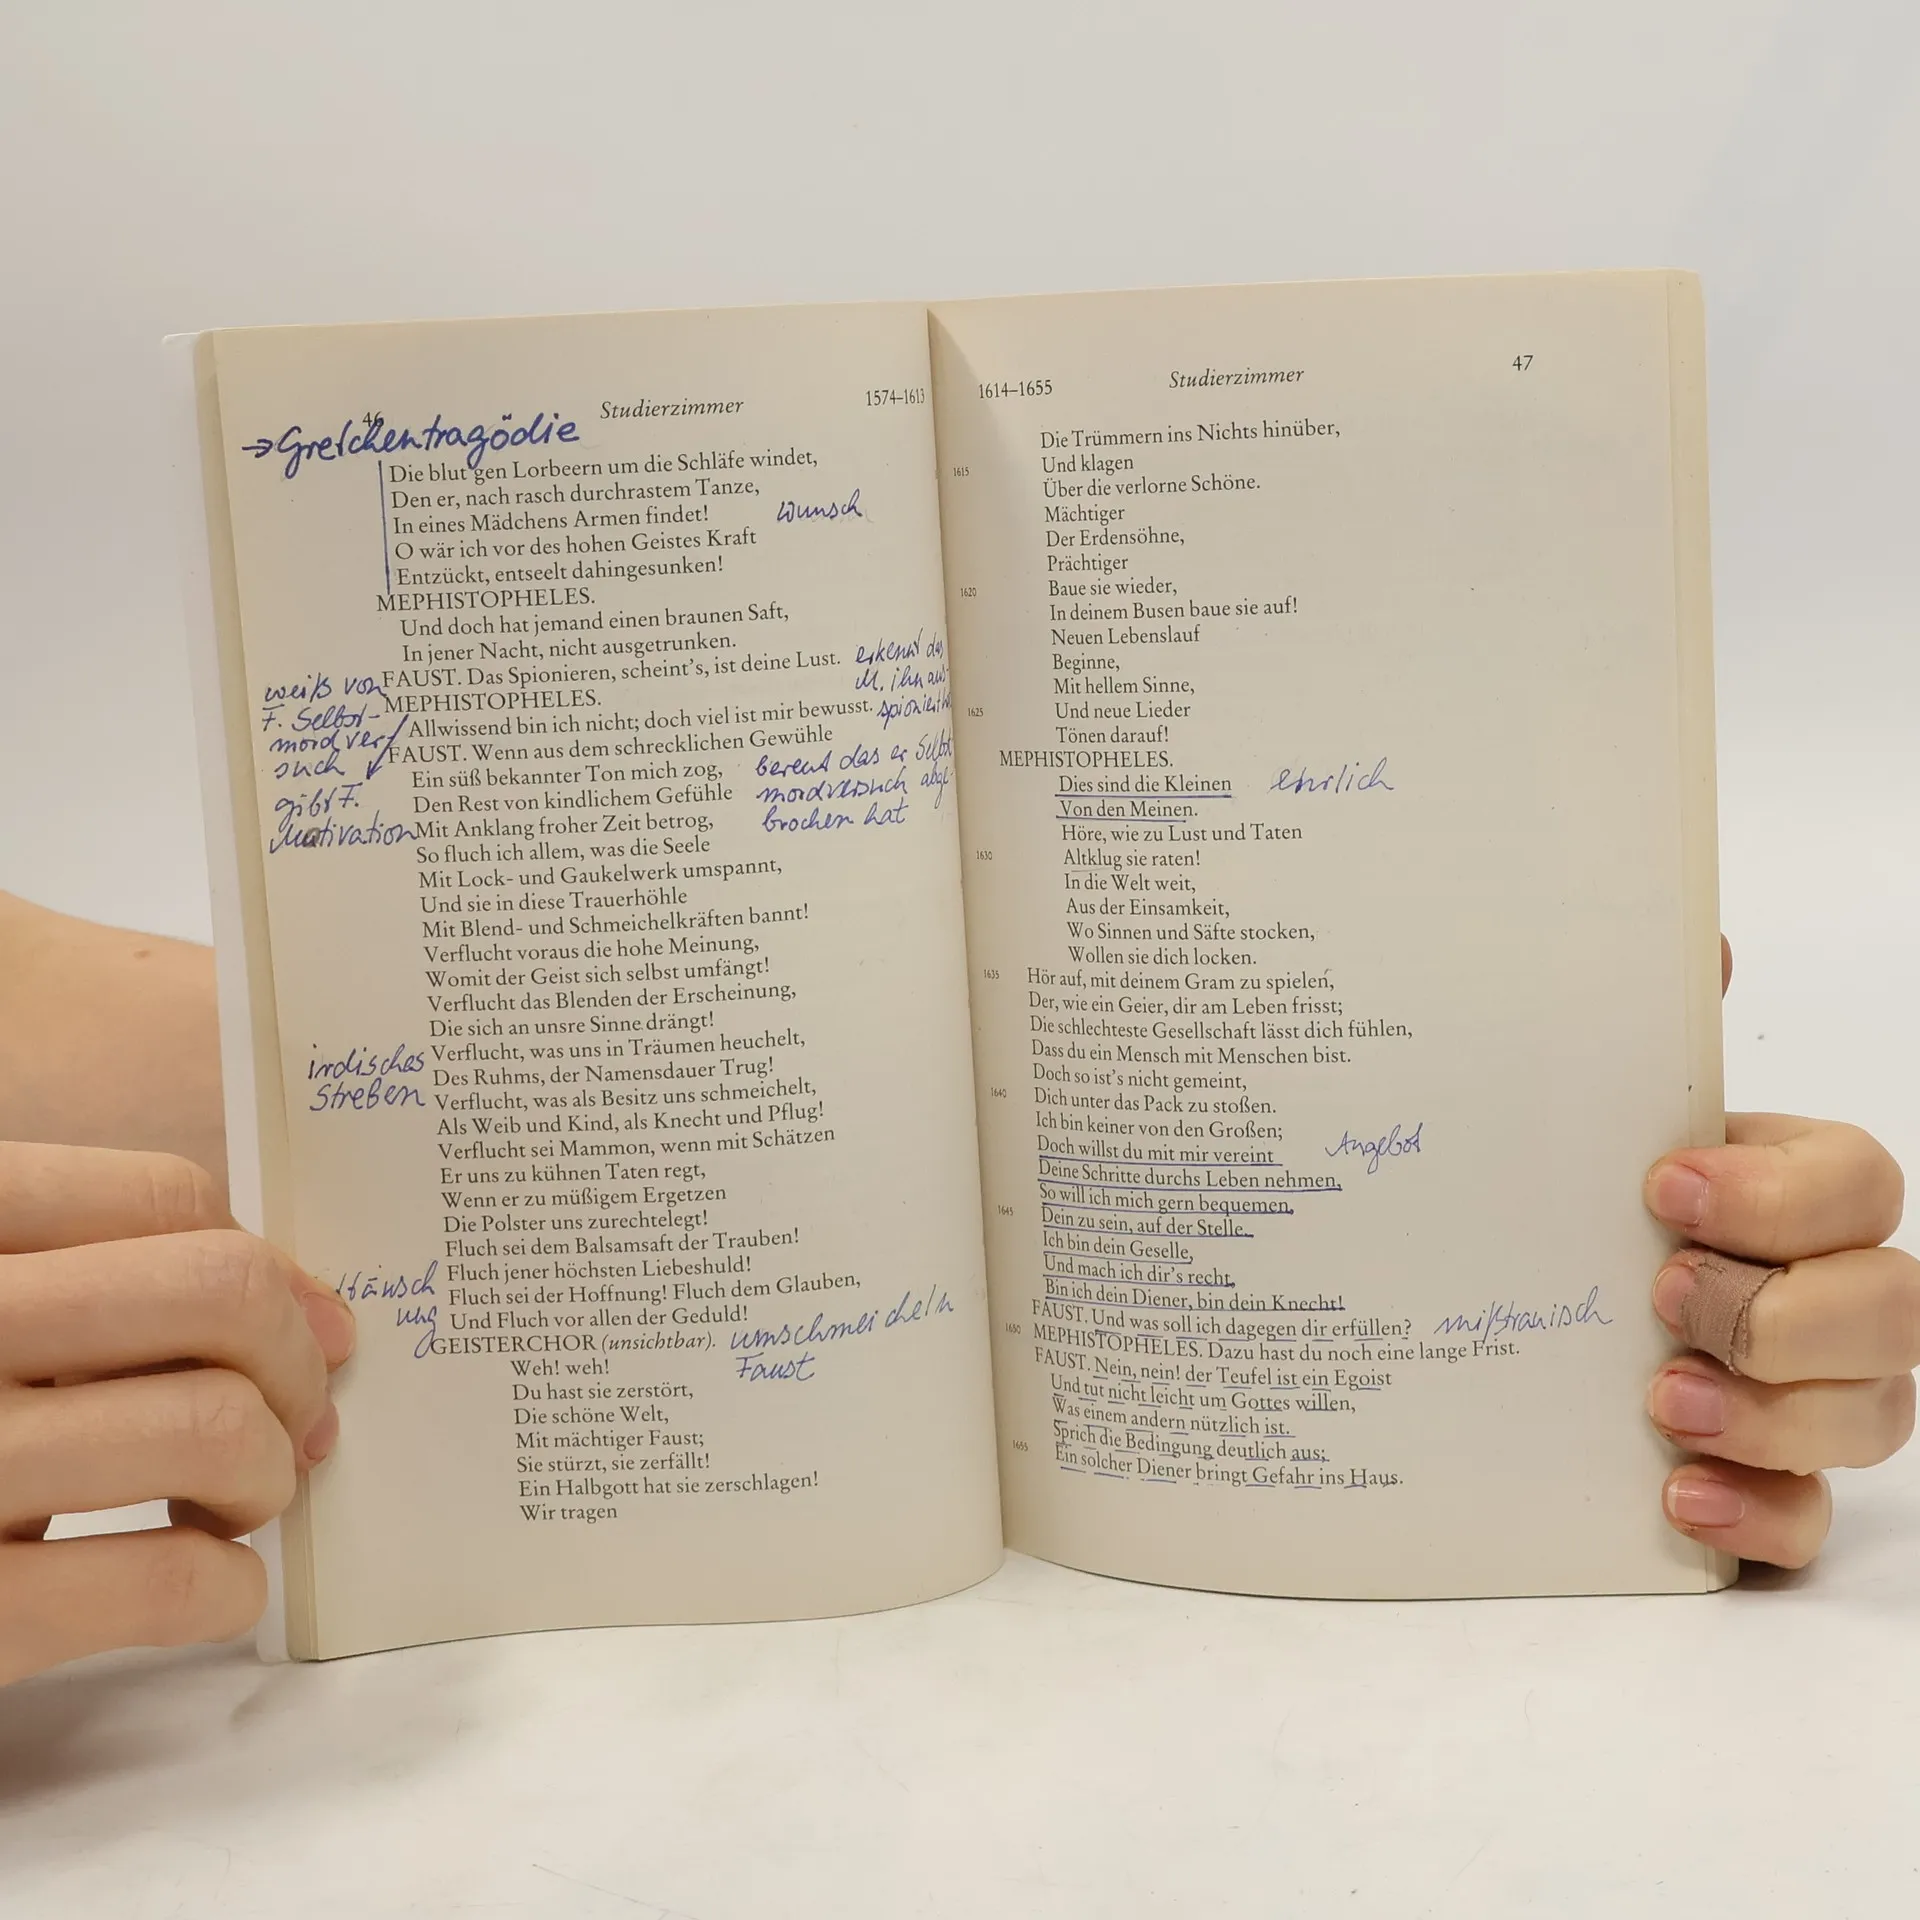 46 Studierzimmer 1574–1613
→ Gretchentragödie
Die blut'gen Lorbeern um die Schläfe windet,
Den er, nach rasch durchrastem Tanze,
In eines Mädchens Armen findet! Wunsch
O wär ich vor des hohen Geistes Kraft
Entzückt, entseelt dahingesunken!
MEPHISTOPHELES.
Und doch hat jemand einen braunen Saft,
In jener Nacht, nicht ausgetrunken.
FAUST. Das Spionieren, scheint's, ist deine Lust.
erkennt das
M. ihn aus-
spioniert
MEPHISTOPHELES.
Allwissend bin ich nicht; doch viel ist mir bewusst.
weiß von
F. Selbst-
mordver
such
gibt F.
Motivation
FAUST. Wenn aus dem schrecklichen Gewühle
Ein süß bekannter Ton mich zog,
Den Rest von kindlichem Gefühle
Mit Anklang froher Zeit betrog,
bereut das er Selbst
mordversuch abge-
brochen hat
So fluch ich allem, was die Seele
Mit Lock- und Gaukelwerk umspannt,
Und sie in diese Trauerhöhle
Mit Blend- und Schmeichelkräften bannt!
Verflucht voraus die hohe Meinung,
Womit der Geist sich selbst umfängt!
Verflucht das Blenden der Erscheinung,
Die sich an unsre Sinne drängt!
irdisches
Streben
Verflucht, was uns in Träumen heuchelt,
Des Ruhms, der Namensdauer Trug!
Verflucht, was als Besitz uns schmeichelt,
Als Weib und Kind, als Knecht und Pflug!
Verflucht sei Mammon, wenn mit Schätzen
Er uns zu kühnen Taten regt,
Wenn er zu müßigem Ergetzen
Die Polster uns zurechtelegt!
Fluch sei dem Balsamsaft der Trauben!
Fluch jener höchsten Liebeshuld!
Fluch sei der Hoffnung! Fluch dem Glauben,
Und Fluch vor allen der Geduld!
ttäusch
ung
GEISTERCHOR (unsichtbar). umschmeicheln
Faust
Weh! weh!
Du hast sie zerstört,
Die schöne Welt,
Mit mächtiger Faust;
Sie stürzt, sie zerfällt!
Ein Halbgott hat sie zerschlagen!
Wir tragen
1614–1655 Studierzimmer 47
Die Trümmern ins Nichts hinüber,
1615 Und klagen
Über die verlorne Schöne.
Mächtiger
Der Erdensöhne,
Prächtiger
1620 Baue sie wieder,
In deinem Busen baue sie auf!
Neuen Lebenslauf
Beginne,
Mit hellem Sinne,
1625 Und neue Lieder
Tönen darauf!
MEPHISTOPHELES.
Dies sind die Kleinen ehrlich
Von den Meinen.
Höre, wie zu Lust und Taten
1630 Altklug sie raten!
In die Welt weit,
Aus der Einsamkeit,
Wo Sinnen und Säfte stocken,
Wollen sie dich locken.
1635 Hör auf, mit deinem Gram zu spielen,
Der, wie ein Geier, dir am Leben frisst;
Die schlechteste Gesellschaft lässt dich fühlen,
Dass du ein Mensch mit Menschen bist.
Doch so ist's nicht gemeint,
1640 Dich unter das Pack zu stoßen.
Ich bin keiner von den Großen;
Doch willst du mit mir vereint Angebot
Deine Schritte durchs Leben nehmen,
So will ich mich gern bequemen,
1645 Dein zu sein, auf der Stelle.
Ich bin dein Geselle,
Und mach ich dir's recht,
Bin ich dein Diener, bin dein Knecht!
FAUST. Und was soll ich dagegen dir erfüllen? mißtrauisch
1650 MEPHISTOPHELES. Dazu hast du noch eine lange Frist.
FAUST. Nein, nein! der Teufel ist ein Egoist
Und tut nicht leicht um Gottes willen,
Was einem andern nützlich ist.
Sprich die Bedingung deutlich aus;
1655 Ein solcher Diener bringt Gefahr ins Haus.